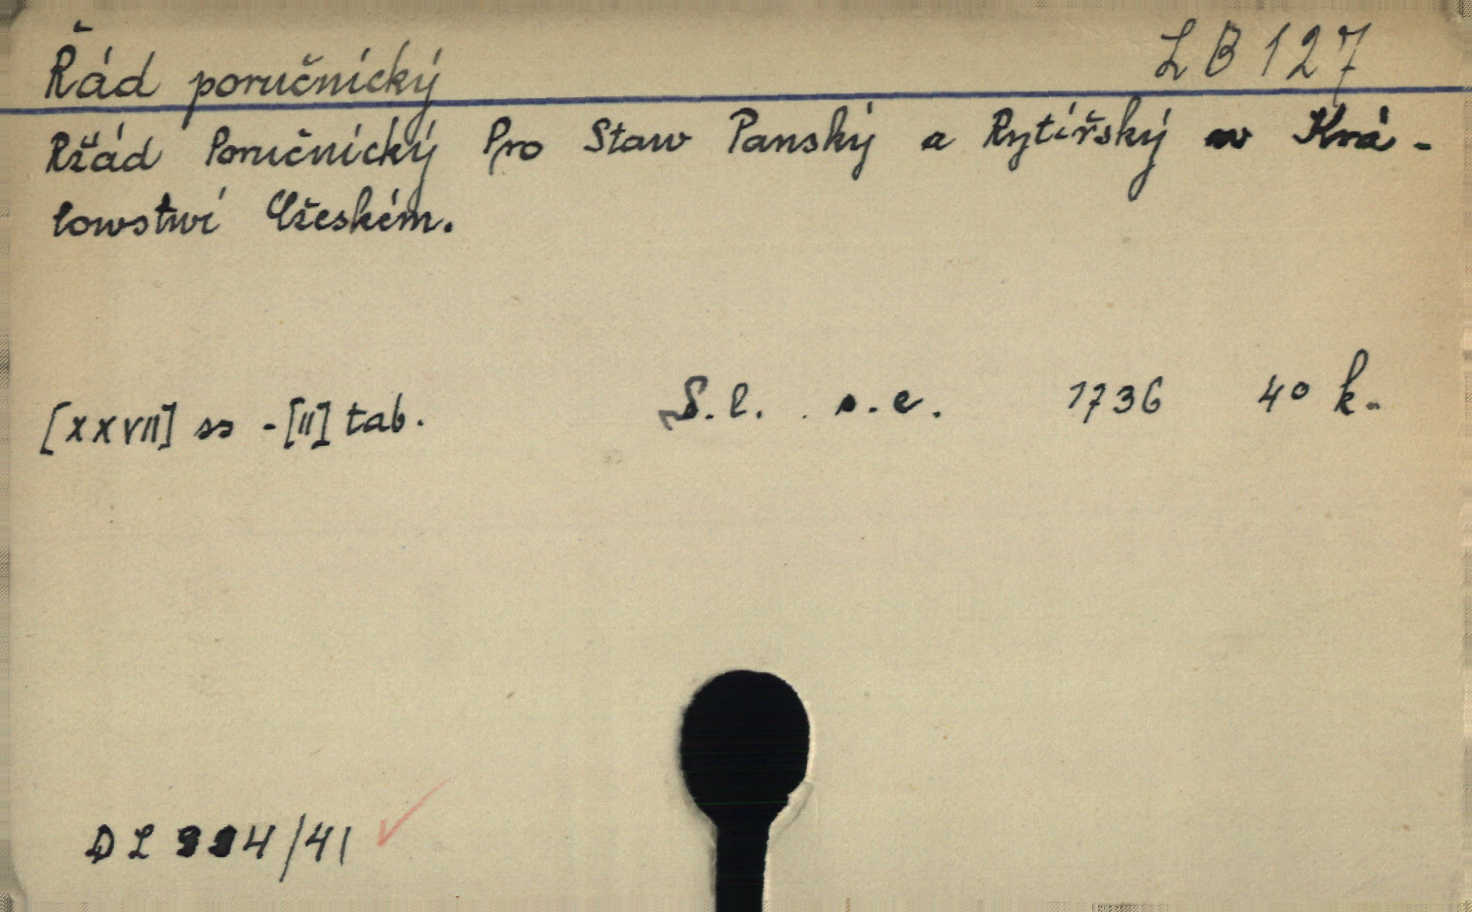 Řád poručnícký LB 127
Ržád Poručnícký Pro Staw Panský a Rytířský w Krá-
lowstwí Cžeském.
[XXVII] ss - [II] tab. S. l. s. e. 1736 4° k.
DL 994/41